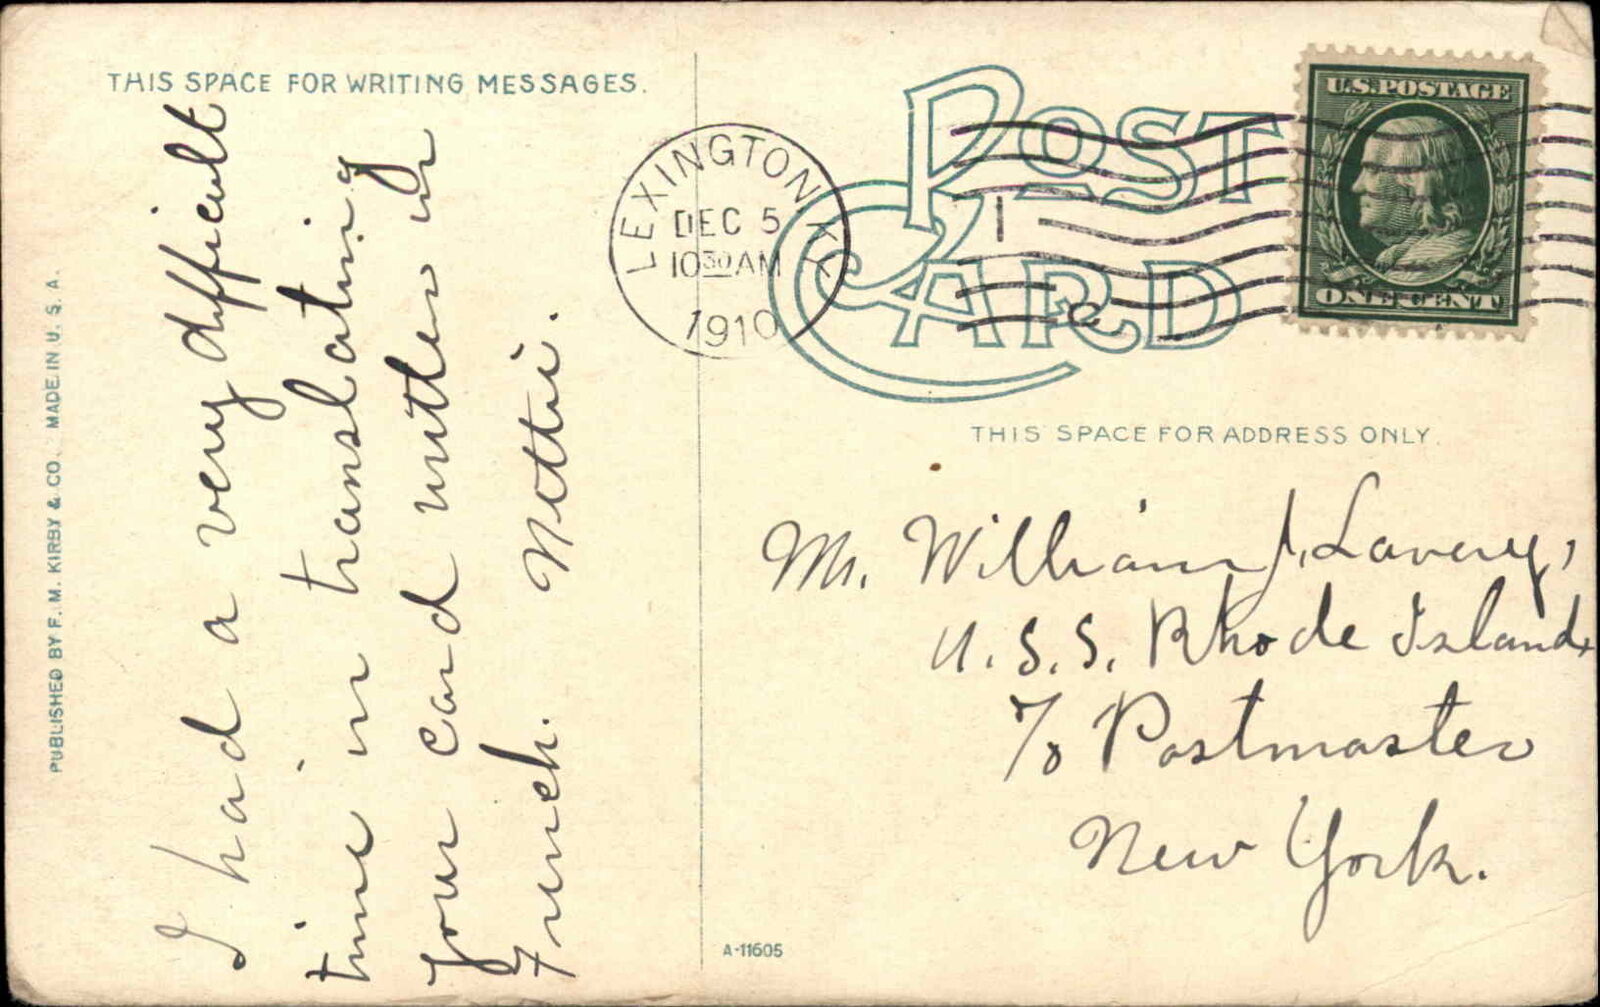 THIS SPACE FOR WRITING MESSAGES.
I had a very difficult
time in translating
your card written in
French. Nettie.
PUBLISHED BY F. M. KIRBY & CO. MADE IN U. S. A.
LEXINGTON KY
DEC 5
10 30 AM
1910
POST CARD
1
U.S. POSTAGE
ONE CENT
THIS SPACE FOR ADDRESS ONLY.
Mr. William J. Lavery,
U. S. S. Rhode Island,
c/o Postmaster
New York.
A-11605